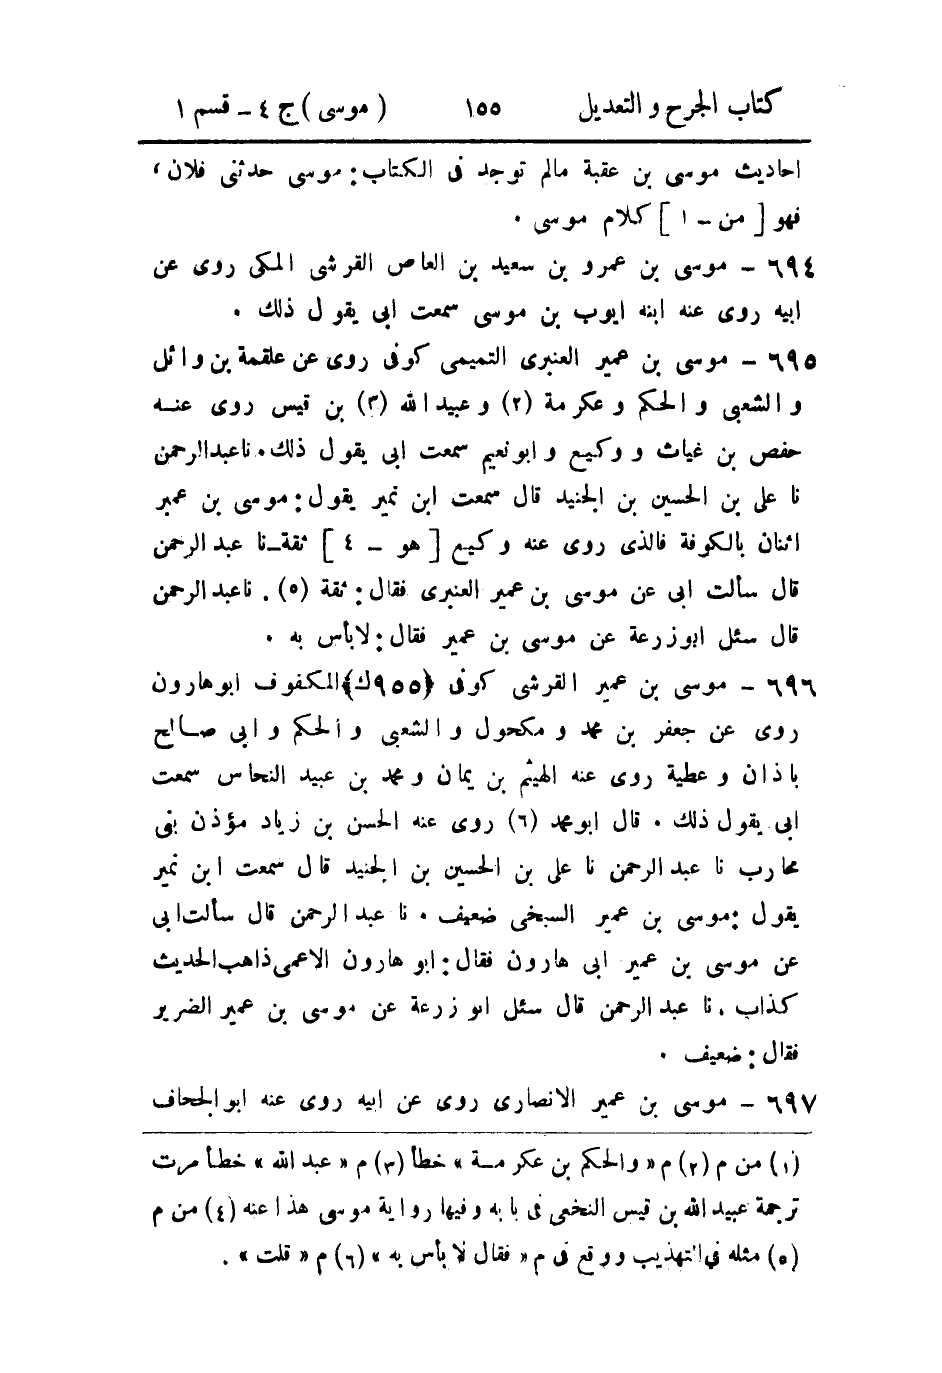 كتاب الجرح و التعديل ١٥٥ ( موسى ) ج ٤ - قسم ١
احاديث موسى بن عقبة مالم توجد فى الكتاب : موسى حدثنى فلان ،
فهو [ من - ١ ] كلام موسى .
٦٩٤ - موسى بن عمرو بن سعيد بن العاص القرشى المكى روى عن
ابيه روى عنه ابنه ايوب بن موسى سمعت ابى يقول ذلك .
٦٩٥ - موسى بن عمير العنبرى التميمى كوفى روى عن علقمة بن وائل
و الشعبى و الحكم و عكرمة (٢) و عبيد الله (٣) بن قيس روى عنه
حفص بن غياث و وكيع و ابو نعيم سمعت ابى يقول ذلك . نا عبد الرحمن
نا على بن الحسين بن الجنيد قال سمعت ابن نمير يقول : موسى بن عمير
اثنان بالكوفة فالذى روى عنه وكيع [ هو - ٤ ] ثقة - نا عبد الرحمن
قال سألت ابى عن موسى بن عمير العنبرى فقال : ثقة (٥) . نا عبد الرحمن
قال سئل ابو زرعة عن موسى بن عمير فقال : لا بأس به .
٦٩٦ - موسى بن عمير القرشى كوفى ﴿٩٥٥ك﴾ المكفوف ابو هارون
روى عن جعفر بن محمد و مكحول و الشعبى و الحكم و ابى صالح
باذان و عطية روى عنه الهيثم بن يمان و محمد بن عبيد النحاس سمعت
ابى يقول ذلك . قال ابو محمد (٦) روى عنه الحسن بن زياد مؤذن بنى
محارب نا عبد الرحمن نا على بن الحسين بن الجنيد قال سمعت ابن نمير
يقول : موسى بن عمير السبخى ضعيف . نا عبد الرحمن قال سألت ابى
عن موسى بن عمير ابى هارون فقال : ابو هارون الاعمى ذاهب الحديث
كذاب . نا عبد الرحمن قال سئل ابو زرعة عن موسى بن عمير الضرير
فقال : ضعيف .
٦٩٧ - موسى بن عمير الانصارى روى عن ابيه روى عنه ابو الجحاف
(١) من م (٢) م « والحكم بن عكرمة » خطأ (٣) م « عبد الله » خطأ مرت
ترجمة عبيد الله بن قيس النخعى فى بابه وفيها رواية موسى هذا عنه (٤) من م
(٥) مثله في التهذيب ووقع فى م « فقال لا بأس به » (٦) م « قلت » .